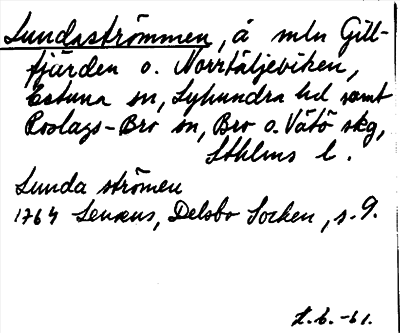 Lundaströmmen, å mln Gill-
fjärden o. Norrtäljeviken,
Estuna sn, Lyhundra hd samt
Roslags-Bro sn, Bro o. Vätö skg,
Sthlms l.
Lunda strömen
1764 Lenæus, Delsbo Socken, s. 9.
H. b. -61.